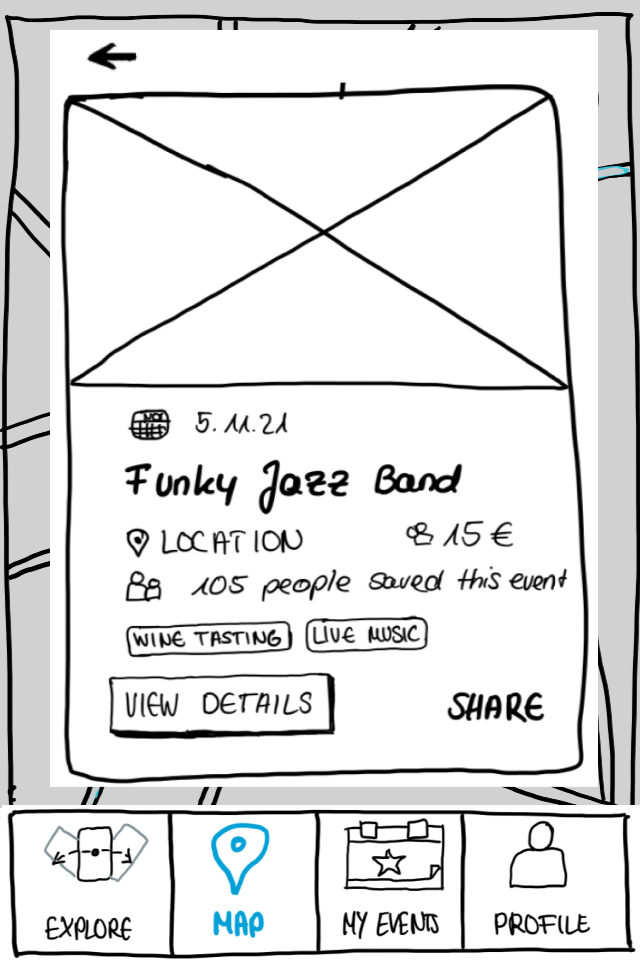 5.11.21
Funky Jazz Band
LOCATION 15 €
105 people saved this event
WINE TASTING LIVE MUSIC
VIEW DETAILS SHARE
EXPLORE MAP MY EVENTS PROFILE